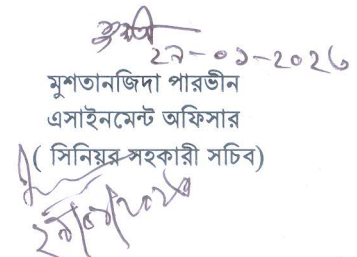 ২৯-০১-২০২৬
মুশতানজিদা পারভীন
এসাইনমেন্ট অফিসার
( সিনিয়র সহকারী সচিব)